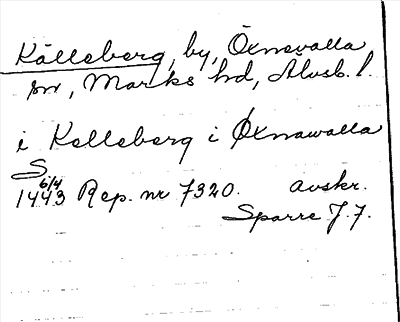 Källeberg, by, Öxnevalla
sn, Marks hd, Älvsb. l.
i Kelleberg i Øxnawalla
S.
6/4
1443 Rep. nr 7320. avskr.
Sparre J. 7.